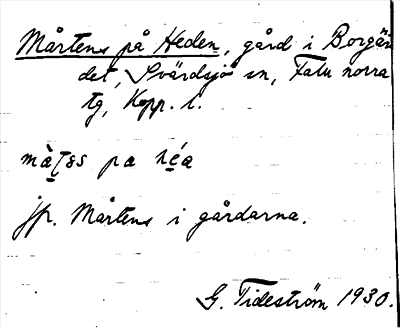 Mårtens på Heden, gård i Borgär
det, Svärdsjö sn, Falu norra
tg, Kopp. l.
pa
jfr. Mårtens i gårdarna.
G. Tideström 1930.